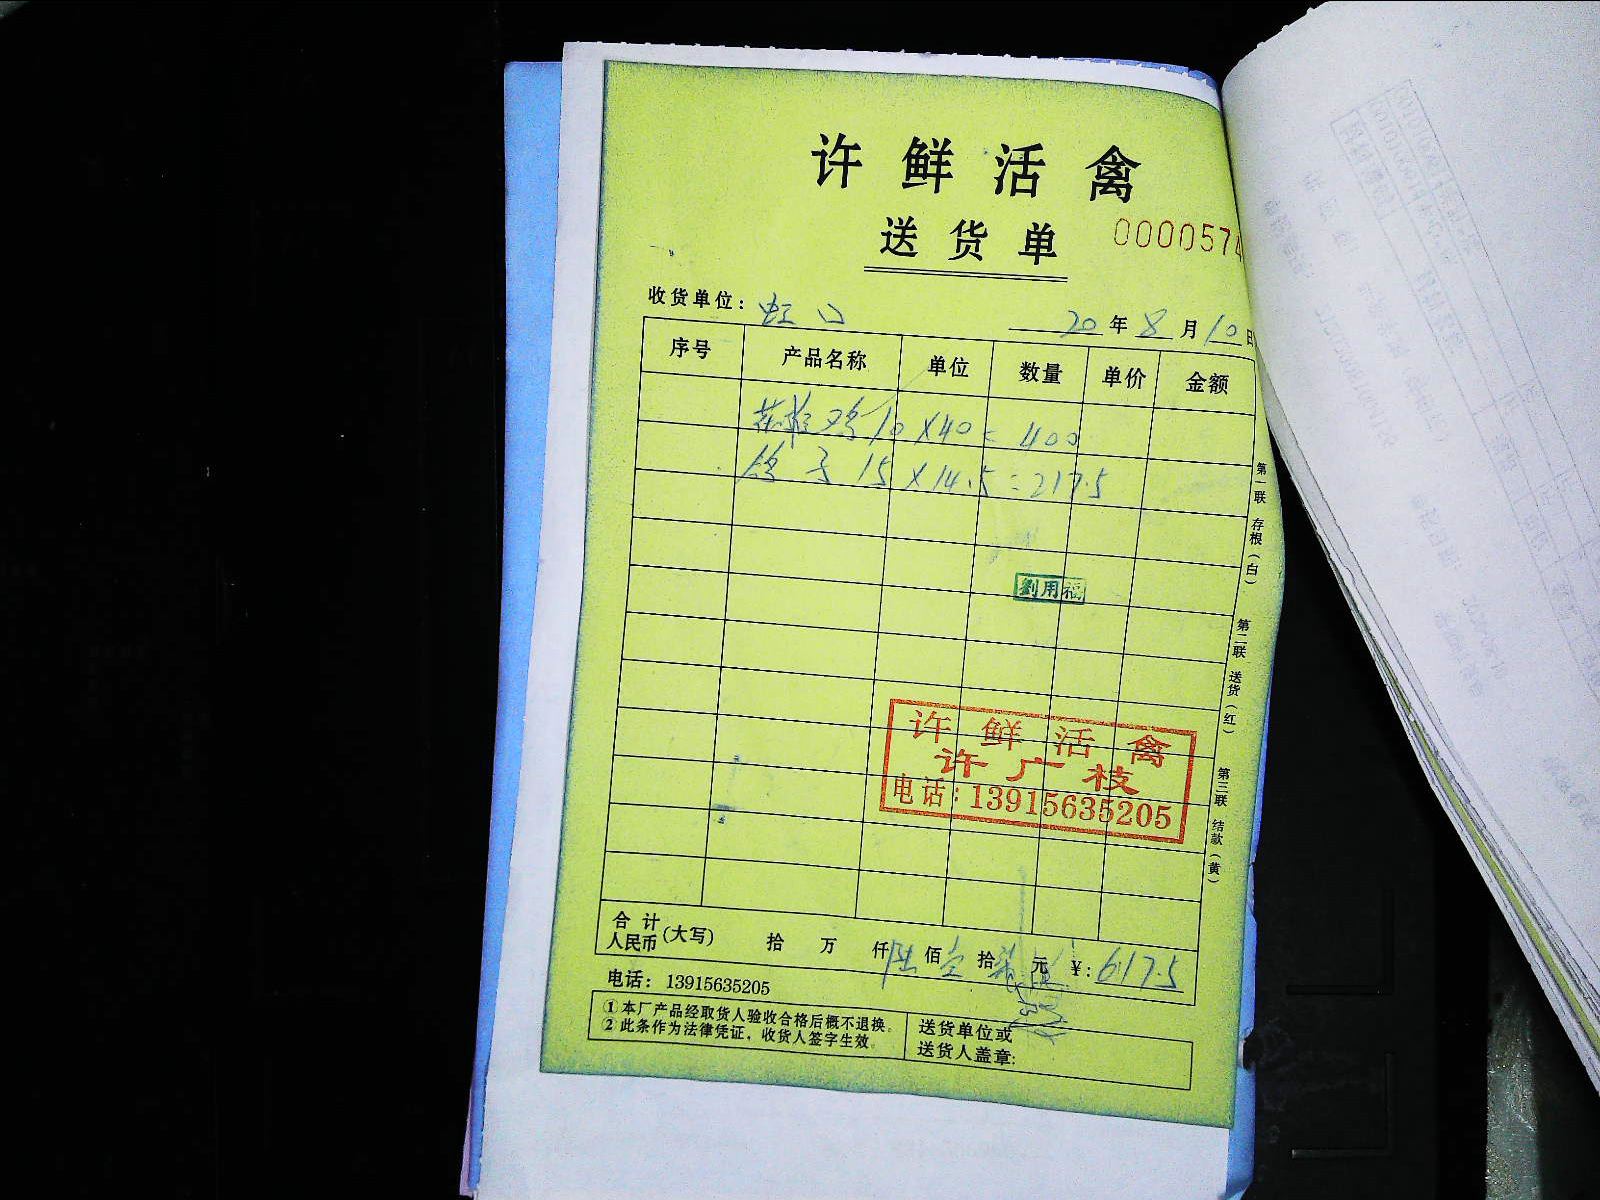 许鲜活禽
送货单
0000574
收货单位：虹口
20年8月10日
序号 产品名称 单位 数量 单价 金额
鸡10×40=400
鸽子15×14.5=217.5
劉用福
许鲜活禽
许广枝
电话：13915635205
第一联 存根（白） 第二联 送货（红） 第三联 结款（黄）
合计
人民币（大写） 拾 万 仟陆佰壹拾柒元 ¥：617.5
电话：13915635205
①本厂产品经取货人验收合格后概不退换。
②此条作为法律凭证，收货人签字生效。
送货单位或
送货人盖章：